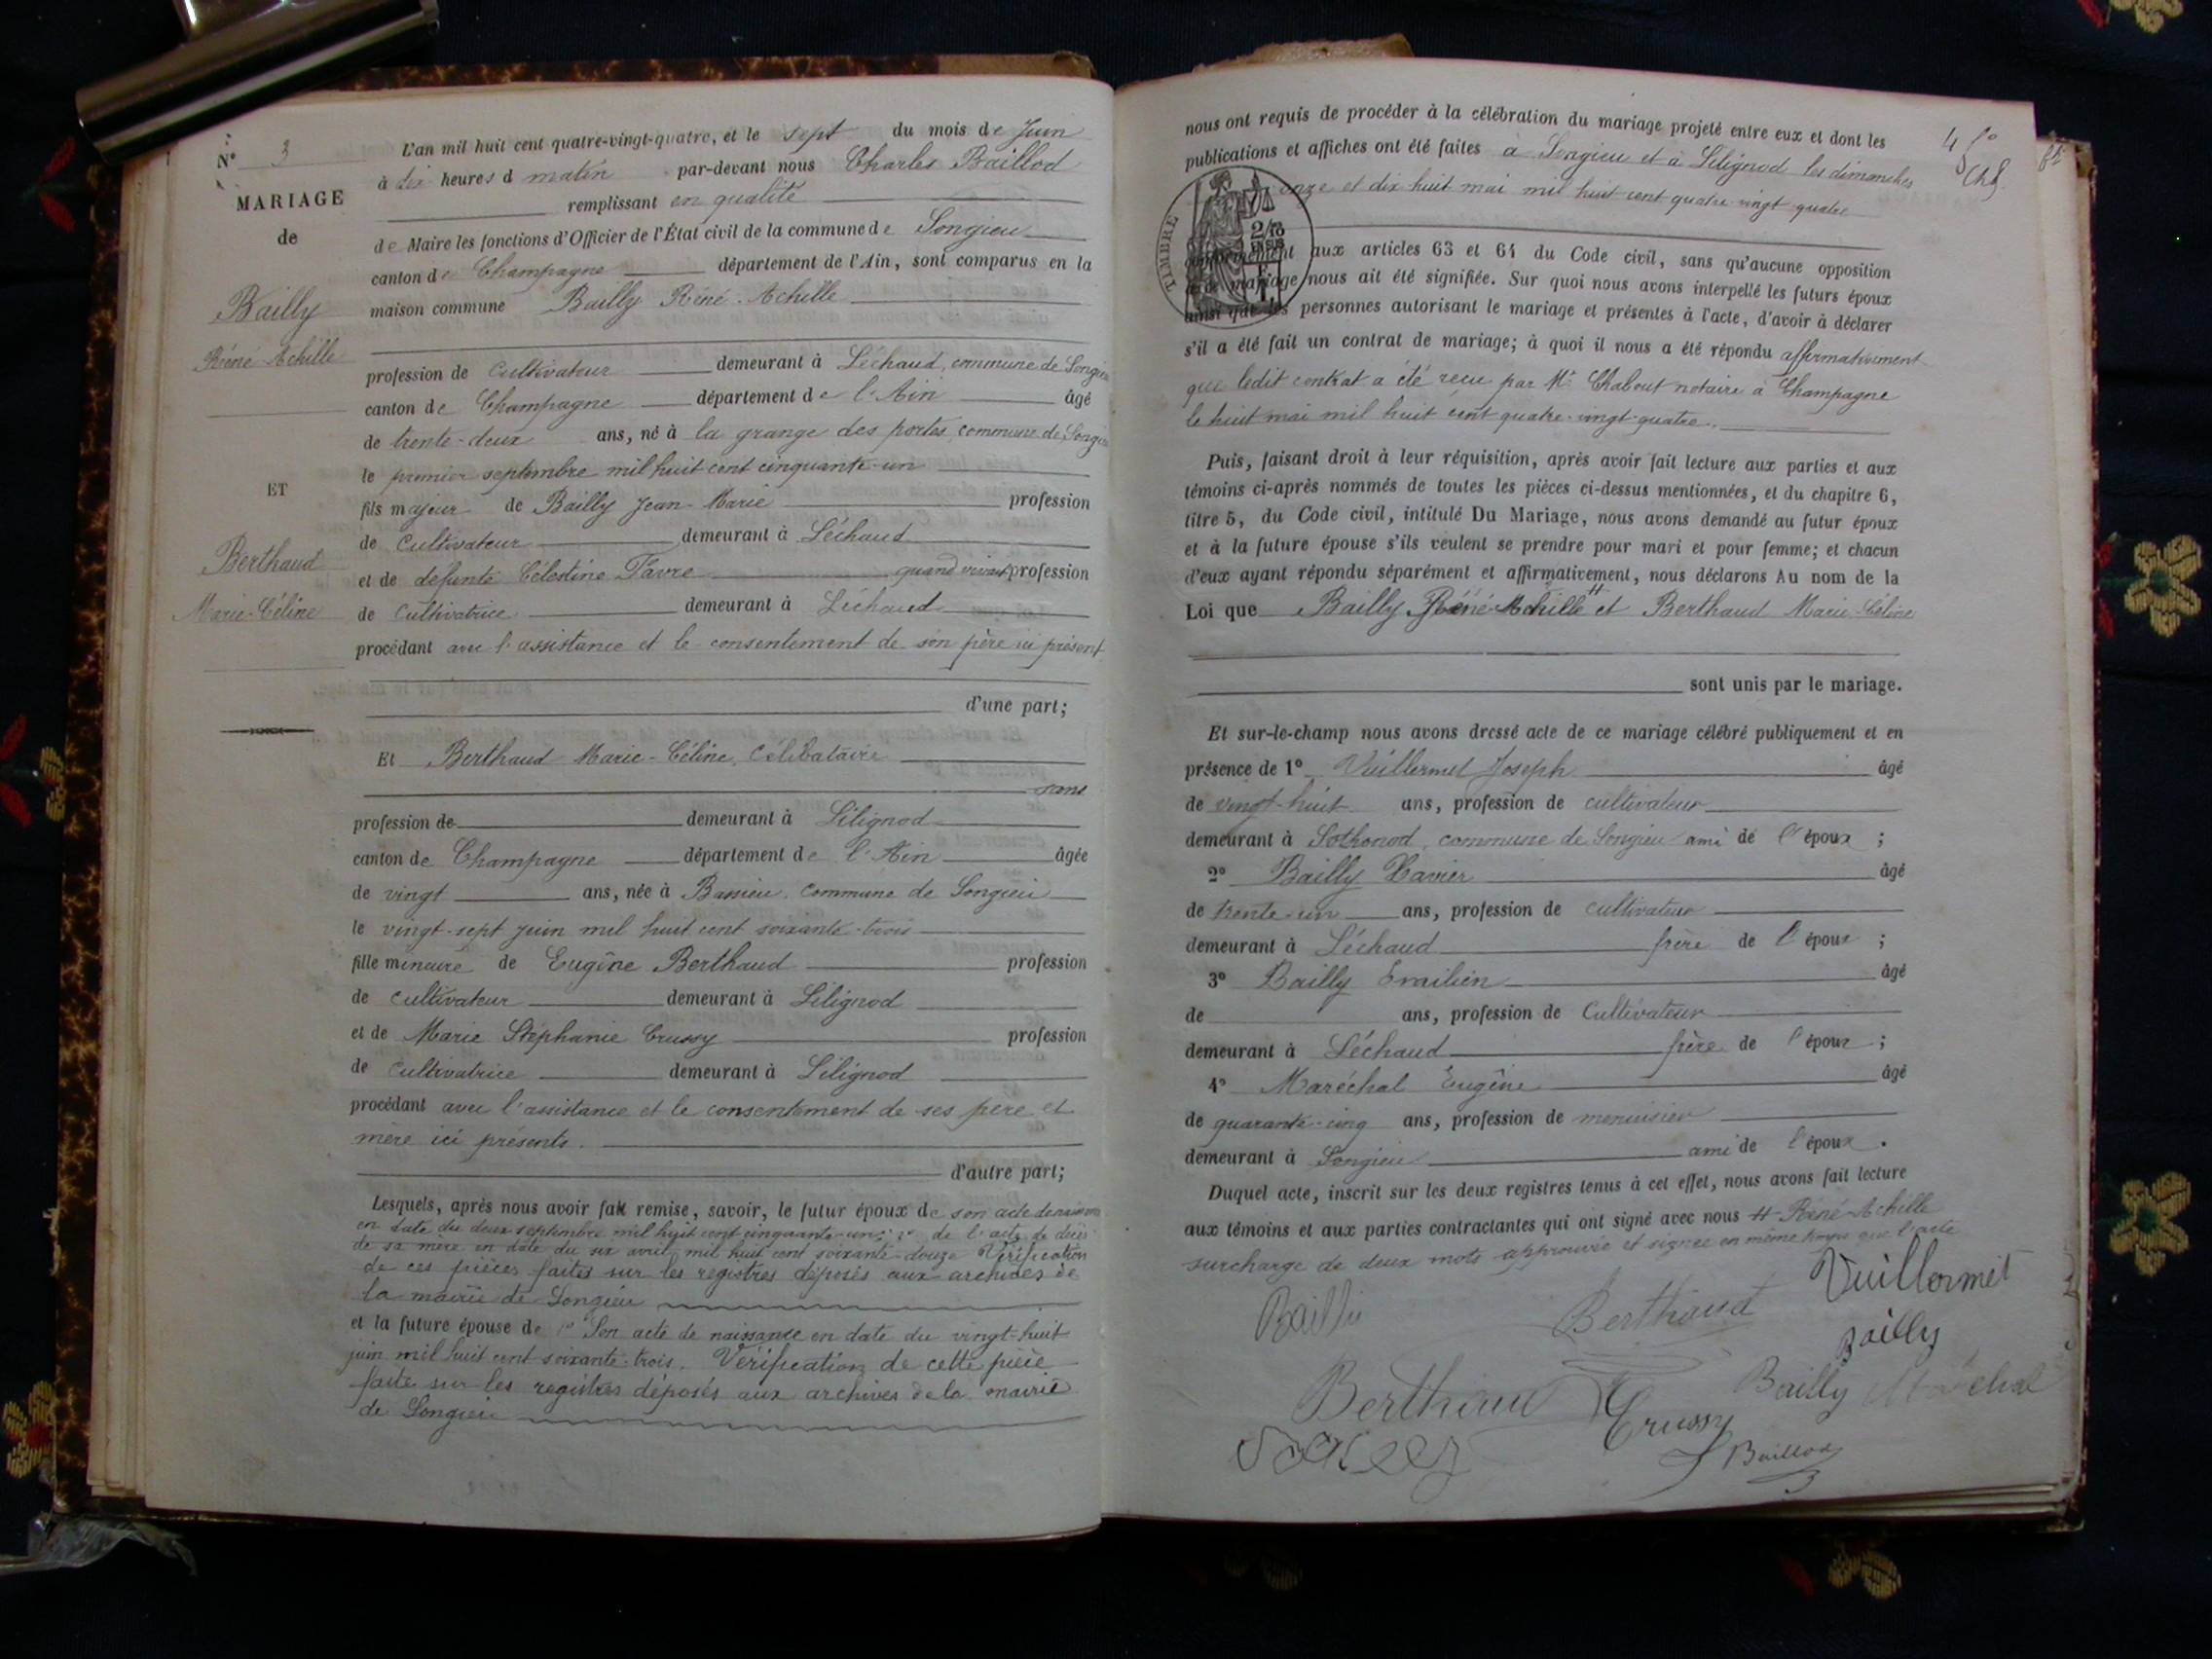 N° 3
MARIAGE
de
Bailly
Réné-Achille
ET
Berthaud
Marie-Céline
L'an mil huit cent quatre-vingt-quatre, et le sept du mois de Juin
à dix heures d matin par-devant nous Charles Baillod
remplissant en qualité
de Maire les fonctions d'Officier de l'État civil de la commune de Songieu
canton de Champagne département de l'Ain, sont comparus en la
maison commune Bailly Réné-Achille
profession de Cultivateur demeurant à Léchaud, commune de Songieu
canton de Champagne département de l'Ain âgé
de trente-deux ans, né à la grange des portes, commune de Songieu
le premier septembre mil huit cent cinquante-un
fils majeur de Bailly Jean-Marie profession
de Cultivateur demeurant à Léchaud
et de défunte Célestine Favre quand vivait profession
de Cultivatrice demeurant à Léchaud
procédant avec l'assistance et le consentement de son père ici présent
d'une part;
Et Berthaud Marie-Céline, Célibataire
sans
profession de demeurant à Lilignod
canton de Champagne département de l'Ain âgée
de vingt ans, née à Bassieu, commune de Songieu
le vingt-sept juin mil huit cent soixante-trois
fille mineure de Eugène Berthaud profession
de cultivateur demeurant à Lilignod
et de Marie Stéphanie Crussy profession
de Cultivatrice demeurant à Lilignod
procédant avec l'assistance et le consentement de ses père et
mère ici présents.
d'autre part;
Lesquels, après nous avoir fait remise, savoir, le futur époux de son acte de naissance
en date du deux septembre mil huit cent cinquante-un; 2° de l'acte de décès
de sa mère en date du six avril mil huit cent soixante-douze Vérification
de ces pièces faites sur les registres déposés aux archives de
la mairie de Songieu
et la future épouse de 1° Son acte de naissance en date du vingt-huit
juin mil huit cent soixante-trois. Vérification de cette pièce
faite sur les registres déposés aux archives de la mairie
de Songieu
nous ont requis de procéder à la célébration du mariage projeté entre eux et dont les
publications et affiches ont été faites à Songieu et à Lilignod les dimanches
onze et dix huit mai mil huit cent quatre-vingt-quatre
TIMBRE
conformément aux articles 63 et 64 du Code civil, sans qu'aucune opposition
à ce mariage nous ait été signifiée. Sur quoi nous avons interpellé les futurs époux
ainsi que les personnes autorisant le mariage et présentes à l'acte, d'avoir à déclarer
s'il a été fait un contrat de mariage; à quoi il nous a été répondu affirmativement
que ledit contrat a été reçu par Me Chabout notaire à Champagne
le huit mai mil huit cent quatre-vingt-quatre.
Puis, faisant droit à leur réquisition, après avoir fait lecture aux parties et aux
témoins ci-après nommés de toutes les pièces ci-dessus mentionnées, et du chapitre 6,
titre 5, du Code civil, intitulé Du Mariage, nous avons demandé au futur époux
et à la future épouse s'ils veulent se prendre pour mari et pour femme; et chacun
d'eux ayant répondu séparément et affirmativement, nous déclarons Au nom de la
Loi que Bailly Réné-Achille # et Berthaud Marie-Céline
sont unis par le mariage.
Et sur-le-champ nous avons dressé acte de ce mariage célébré publiquement et en
présence de 1° Vuillermet Joseph âgé
de vingt-huit ans, profession de cultivateur
demeurant à Sothonod, commune de Songieu ami de l'époux ;
2° Bailly Xavier âgé
de trente-un ans, profession de cultivateur
demeurant à Léchaud frère de l'époux ;
3° Bailly Emilien âgé
de ans, profession de Cultivateur
demeurant à Léchaud frère de l'époux ;
4° Maréchal Eugène âgé
de quarante-cinq ans, profession de menuisier
demeurant à Songieu ami de l'époux .
Duquel acte, inscrit sur les deux registres tenus à cet effet, nous avons fait lecture
aux témoins et aux parties contractantes qui ont signé avec nous # Réné-Achille
surcharge de deux mots approuvée et signée en même temps que l'acte
Vuillermet
Berthaud
Bailly
Bailly Maréchal
Crussy
Baillod